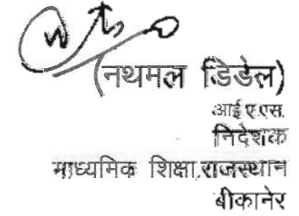 (नथमल डिडेल)
आई.ए.एस.
निदेशक
माध्यमिक शिक्षा,राजस्थान
बीकानेर